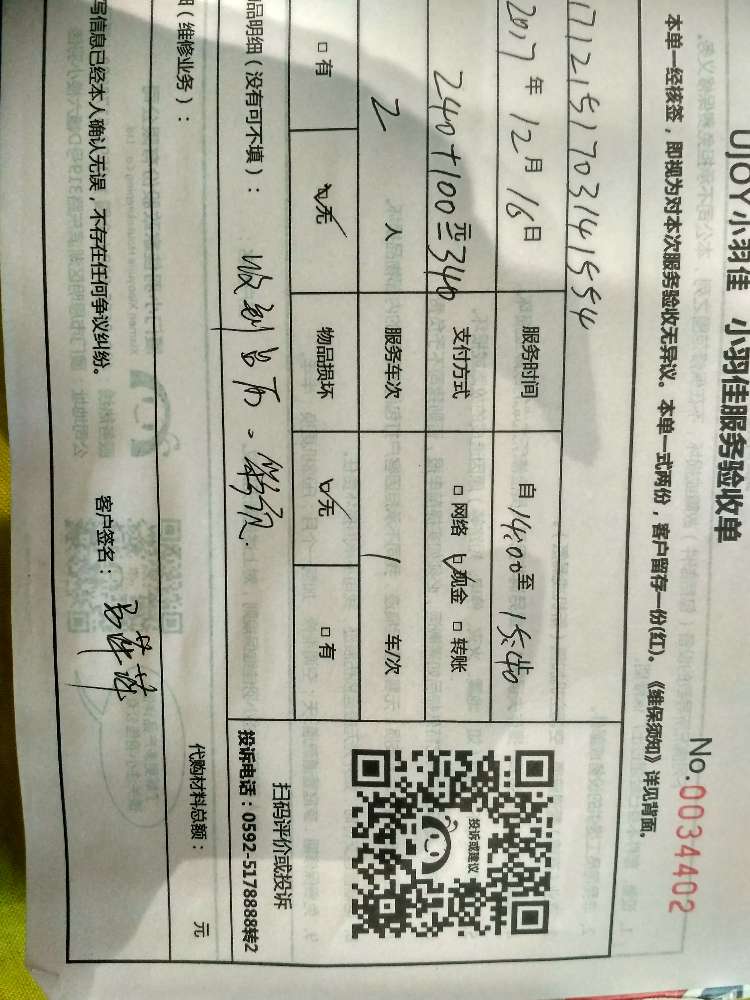 UJOY小羽佳 小羽佳服务验收单
No.0034402
本单一经核签，即视为对本次服务验收无异议。本单一式两份，客户留存一份(红)。《维保须知》详见背面。
1712151703141554
2017年12月16日 服务时间 自14:00至15:40
240+100元=340 支付方式 □网络 ☑现金 □转账
2人 服务车次 1 车/次
□有 ☑无 物品损坏 ☑无 □有
品明细（没有可不填）：
收到
扫码评价或投诉
投诉电话：0592-5178888转2
投诉或建议
（维修业务）： 代购材料总额： 元
写信息已经本人确认无误，不存在任何争议纠纷。 客户签名：